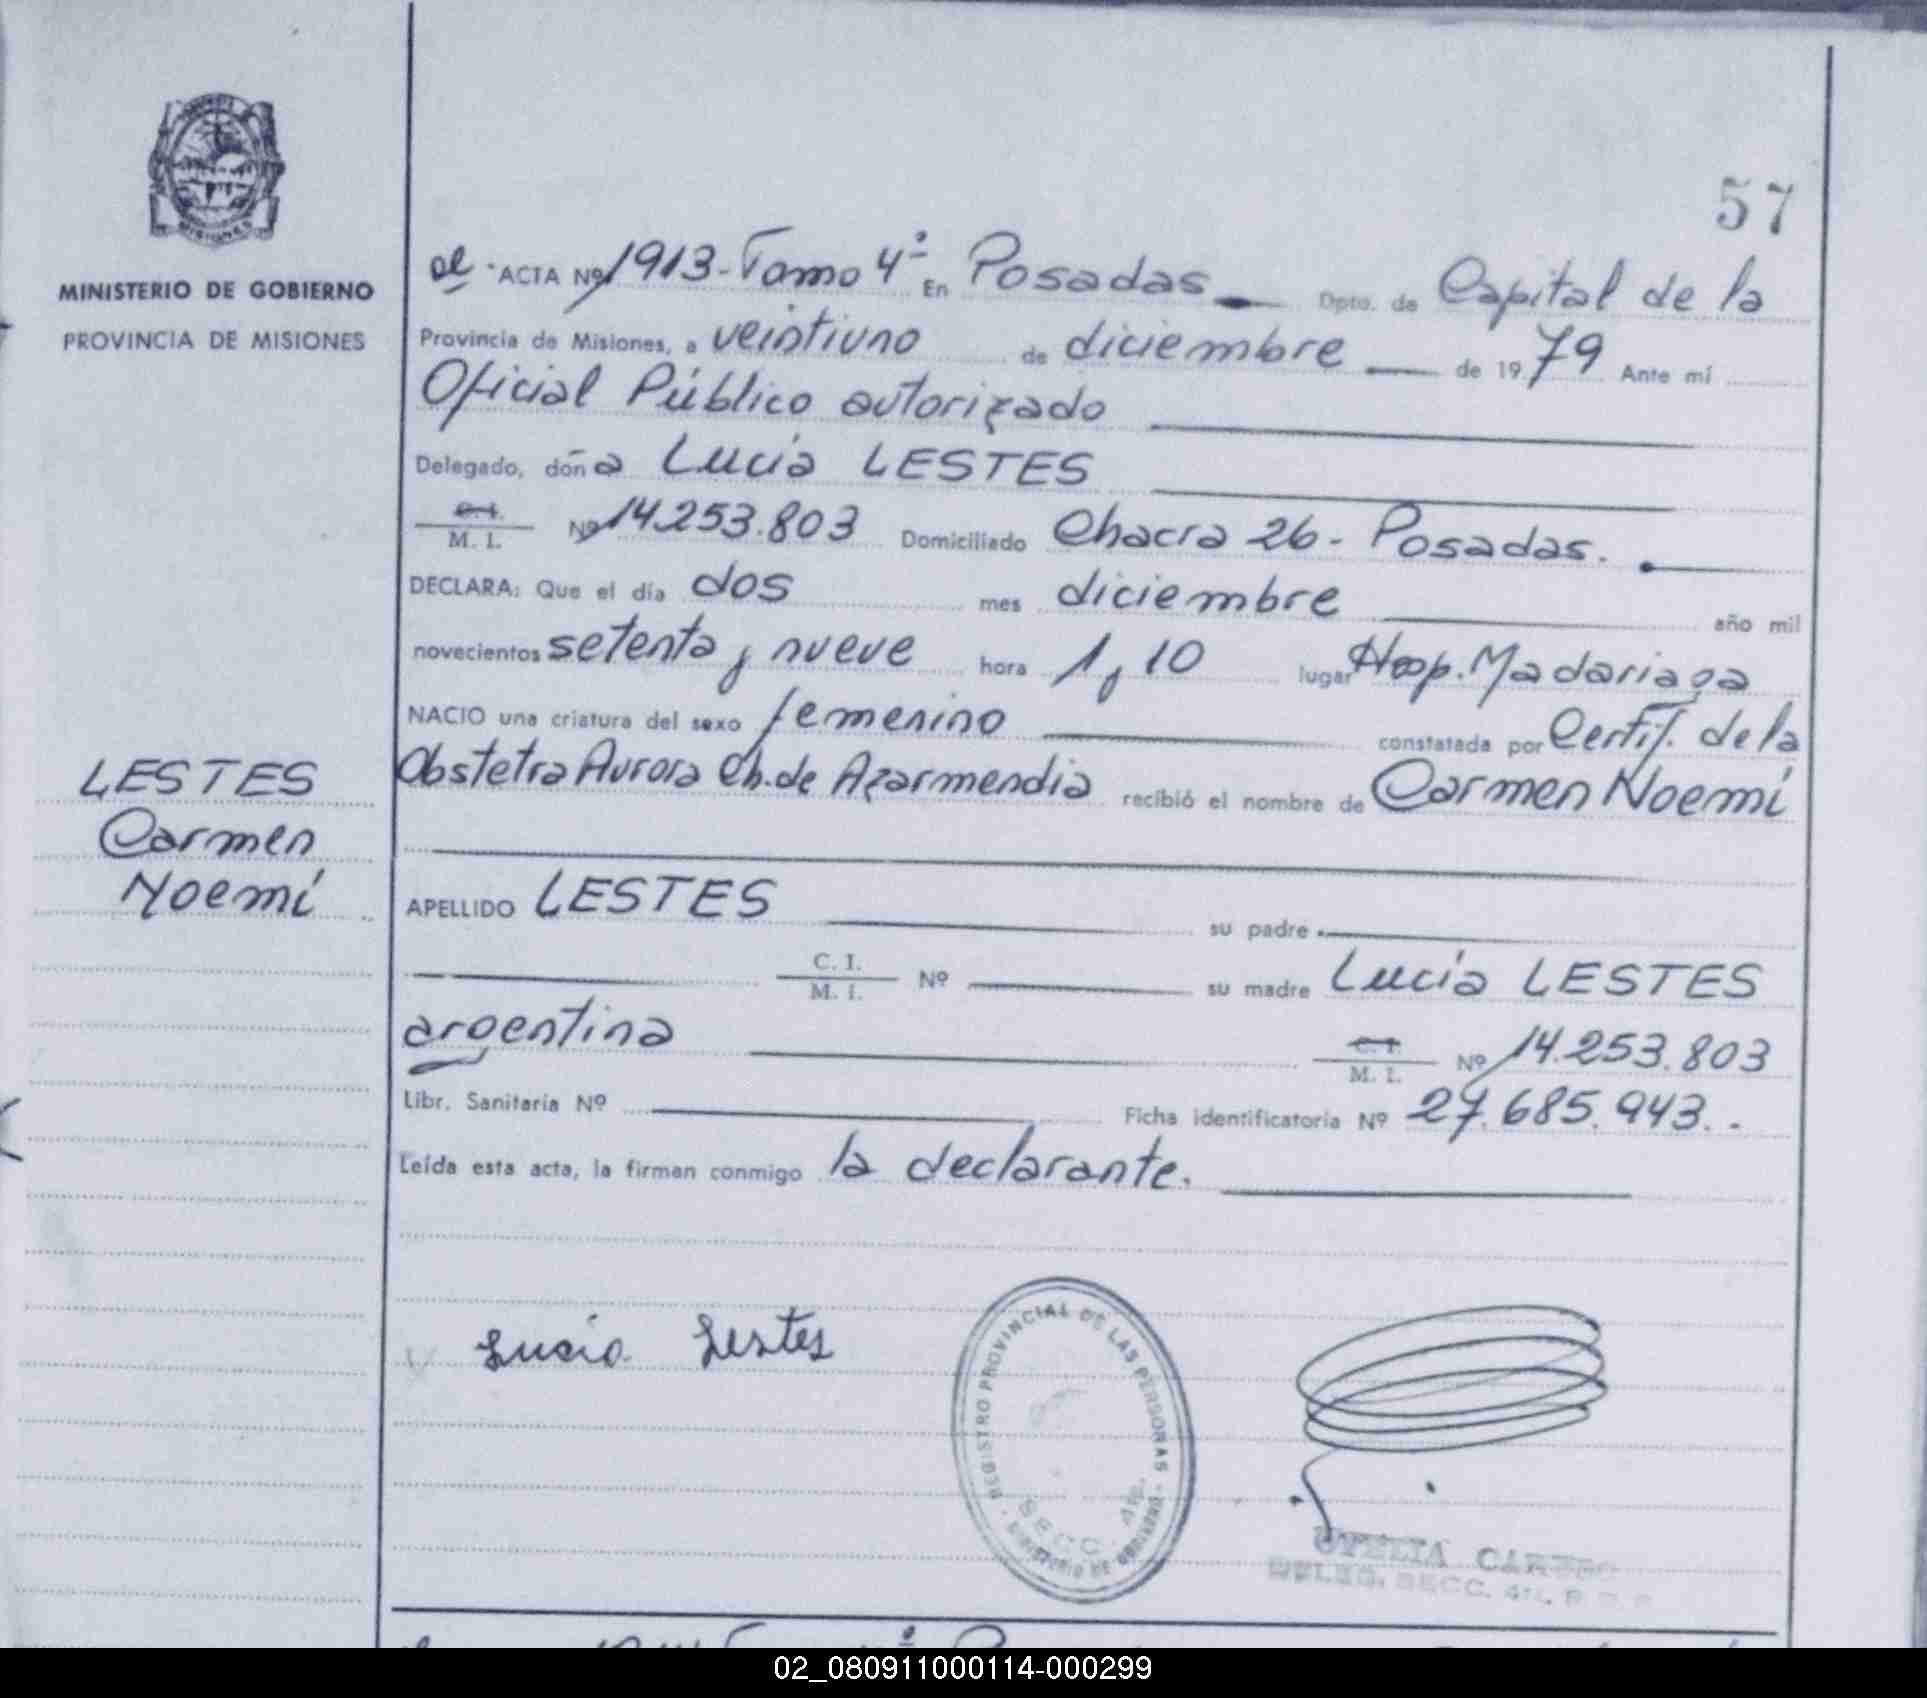 57
MISIONES
MINISTERIO DE GOBIERNO
PROVINCIA DE MISIONES
ACTA Nº 1913-Tomo 4º En Posadas Dpto. de Capital de la
Provincia de Misiones, a veintiuno de diciembre de 1979 Ante mí
Oficial Público autorizado
Delegado, doña Lucía LESTES
C. I. / M. I. Nº 14.253.803 Domiciliado Chacra 26 - Posadas.
DECLARA: Que el día dos mes diciembre año mil
novecientos setenta y nueve hora 1 y 10 lugar Hosp. Madariaga
NACIO una criatura del sexo femenino constatada por Certif. de la
Obstetra Aurora Ch. de Azarmendia recibió el nombre de Carmen Noemí
LESTES
Carmen
Noemí
APELLIDO LESTES su padre
C. I. / M. I. Nº su madre Lucía LESTES
argentina C. I. / M. I. Nº 14.253.803
Libr. Sanitaria Nº Ficha identificatoria Nº 27.685.943.-
Leída esta acta, la firman conmigo la declarante.
Lucia Lestes
REGISTRO PROVINCIAL DE LAS PERSONAS - MINISTERIO DE GOBIERNO
SECC. 4ta.
DELEG. SECC. 4ta.
02_080911000114-000299